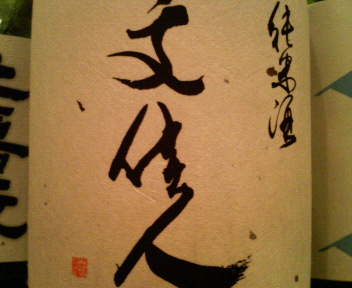 純米酒
文佳人